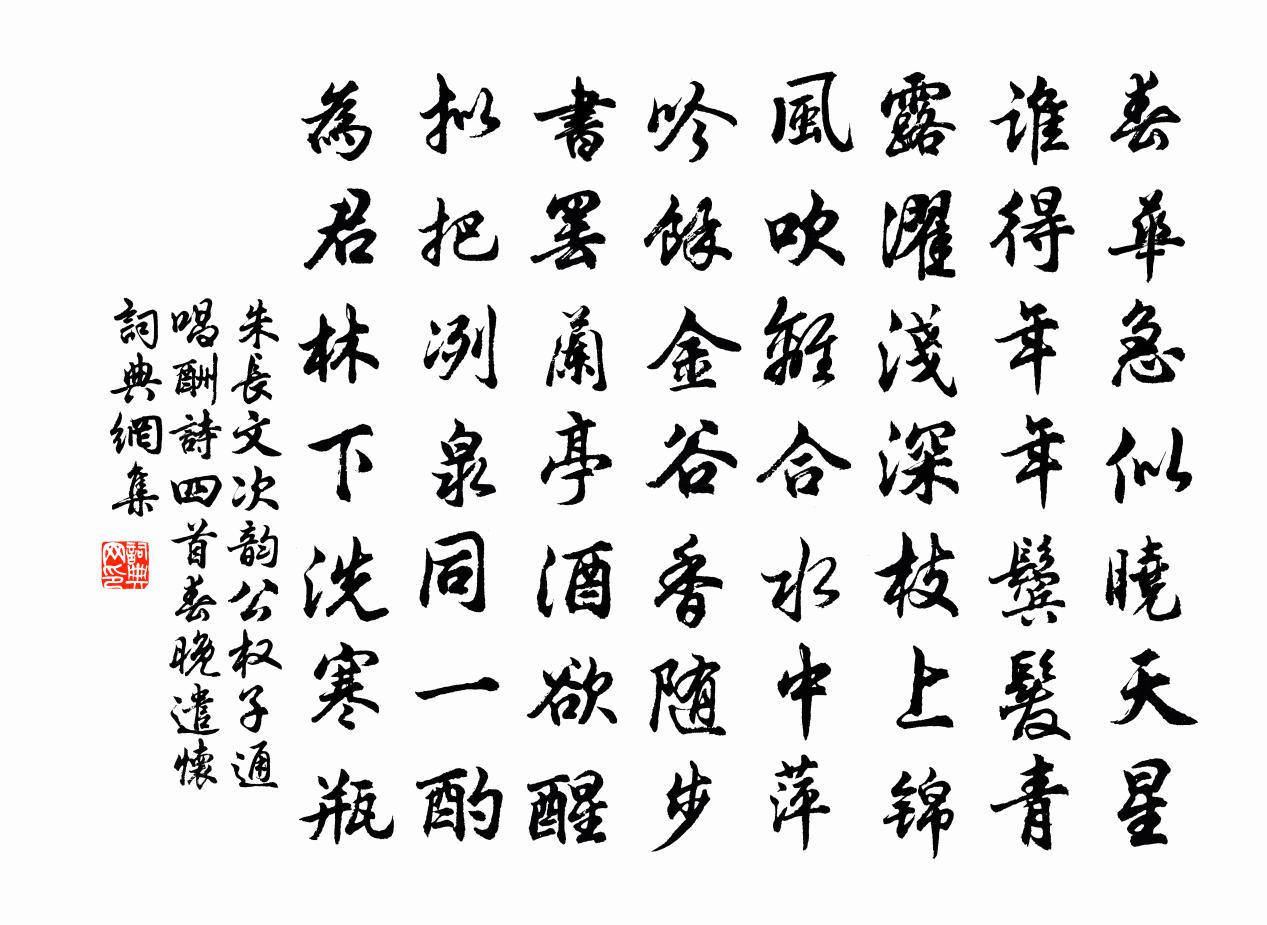 春華急似曉天星
誰得年年鬢髮青
露濯淺深枝上锦
風吹離合水中萍
吟餘金谷香随步
書罷蘭亭酒欲醒
拟把冽泉同一酌
為君林下洗寒瓶
朱長文次韵公权子通
唱酬詩四首春晚遣懷
詞典網集
詞典网印